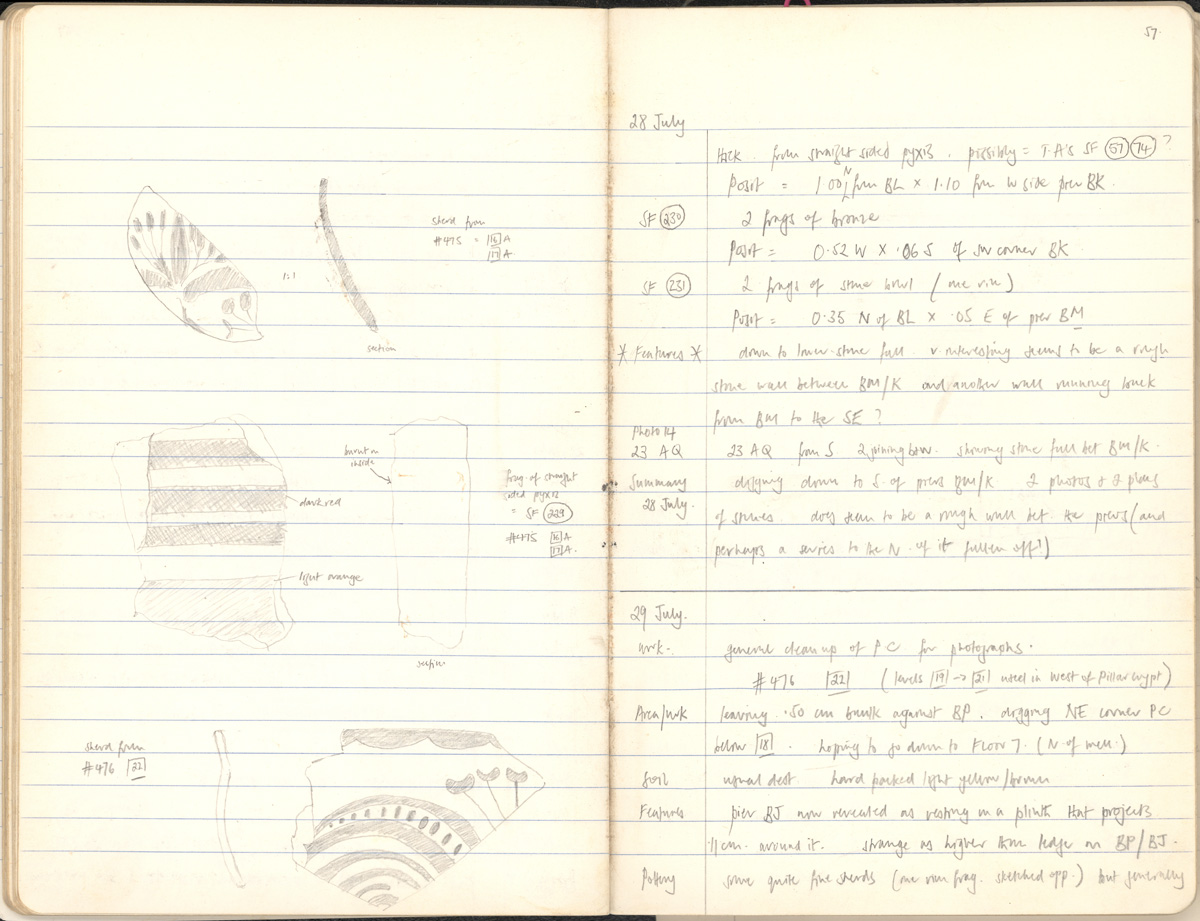 sherd from
#475 = 16 A
17 A
1:1
section
burnt on
inside
dark red
frag. of straight
sided pyxis
= SF 229
#475 16 A
17 A.
light orange
section
sherd from
#476 22
57.
28 July
thick. from straight sided pyxis. possibly = T.A's SF 57 74 ?
Posit = 1.00 N from BL × 1.10 from W side pier BK.
SF 230 2 frags of bronze
Posit = 0.52 W × .06 S of SW corner BK
SF 231 2 frags of stone bowl (one rim)
Posit = 0.35 N of BL × .05 E of pier BM
* Features * down to lower stone fall. v. interesting seems to be a rough
stone wall between BM/K and another wall running back
from BM to the SE ?
Photo 14
23 AQ 23 AQ from S 2 joining b&w. showing stone fall bet BM/K.
Summary digging down to S. of piers BM/K. 2 photos & 2 plans
28 July. of stones. does seem to be a rough wall bet. the piers (and
perhaps a series to the N. of it fallen off?)
29 July.
Work. general clean up of PC for photographs.
#476 22 (levels 19 → 21 used in West of Pillar crypt)
Area/wk leaving .50 cm baulk against BP. digging NE corner PC
below 18. hoping to go down to Floor 7. (N. of
Soil usual dest. hard packed light yellow/brown
Features pier BJ now revealed as resting on a plinth that projects
.11 cm. around it. strange as higher than ledge on BP/BJ.
Pottery some quite fine sherds (one rim frag. sketched opp.) but generally